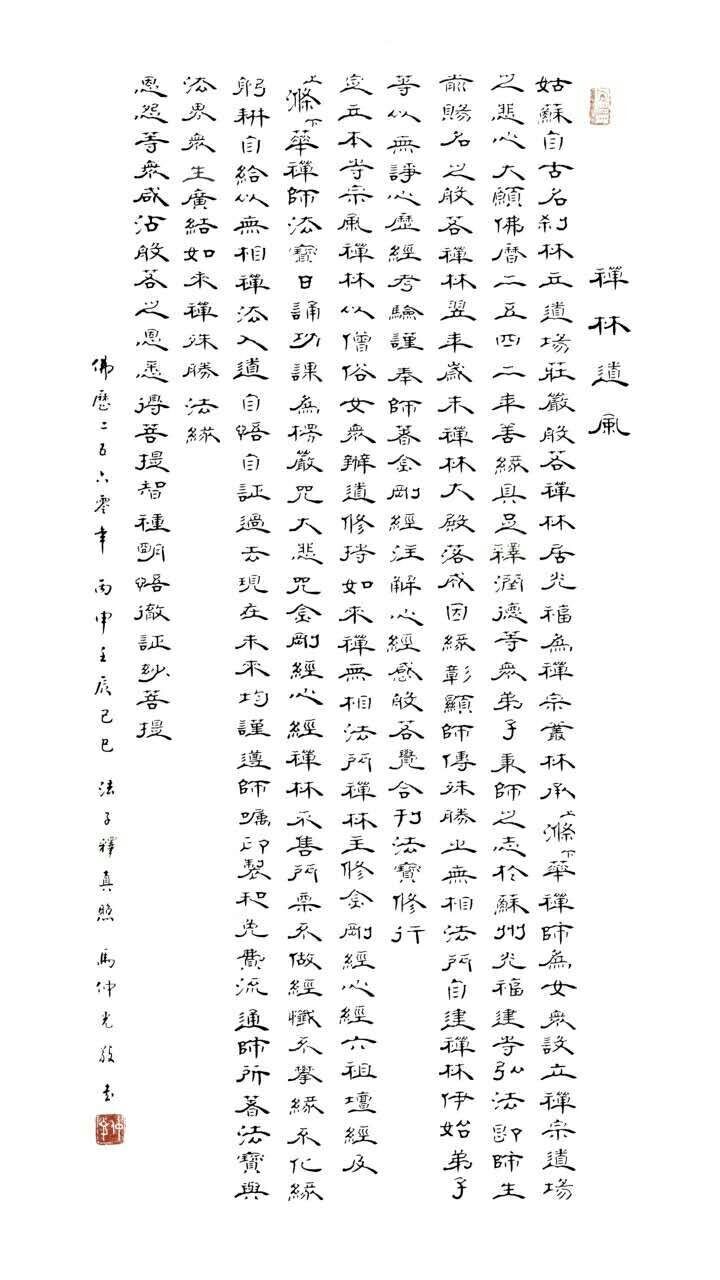 禪林道風
姑蘇自古名刹林立道場莊嚴般若禪林居光福為禪宗叢林承上滌下華禪師為女眾設立禪宗道場
之悲心大願佛曆二五四二年善緣具足釋潤德等眾弟子秉師之志於蘇州光福建寺弘法即師生
前賜名之般若禪林翌年歲末禪林大殿落成因緣彰顯師傳殊勝之無相法門自建禪林伊始弟子
等以無諍心歷經考驗謹奉師著金剛經注解心經感般若覺合刊法寶修行
立本寺宗風禪林以僧俗女眾辦道修持如來禪無相法門禪林主修金剛經心經六祖壇經及
上滌下華禪師法寶日誦功課為楞嚴咒大悲咒金剛經心經禪林不售門票不做經懺不攀緣不化緣
躬耕自給以無相禪法入道自悟自証過去現在未來均謹遵師囑印製和免費流通師所著法寶與
法界眾生廣結如來禪殊勝法緣
恩怨等眾咸沾般若之恩悉得菩提智種明悟徹証妙菩提
佛歷二五六零年 丙申壬辰己巳 法子釋真照 馬仲光敬書